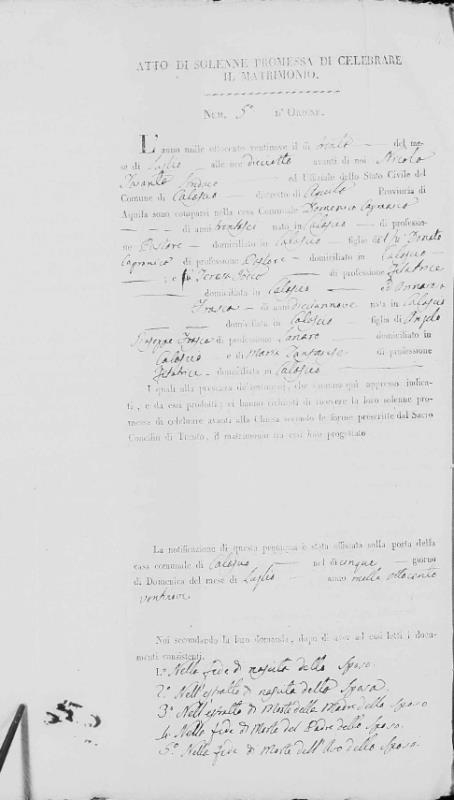 ATTO DI SOLENNE PROMESSA DI CELEBRARE
IL MATRIMONIO.
Num. 5° d'Ordine.
L'anno mille ottocento ventinove il dì venti del me-
se di Luglio alle ore dieciotto avanti di noi Nicola
Sindaco ed Uffiziale dello Stato Civile del
Comune di Calascio distretto di Aquila Provincia di
Aquila sono comparsi nella casa Comunale Domenico
di anni ventosei nato in Calascio di professio-
ne Pastore domiciliato in Calascio figlio del fu Donato
di professione Pastore domiciliato in Calascio
e fu Teresa di professione Filatrice
domiciliata in Calascio ed Annarosa
Frasca di anni Diciannove nata in Calascio
domiciliata in Calascio figlia di Angelo
Giuseppe Frasca di professione Lanaro domiciliato in
Calascio e di Maria di professione
Filatrice domiciliata in Calascio
I quali alla presenza de' testimonj, che saranno quì appresso indica-
ti, e da essi prodotti, ci hanno richiesti di ricevere la loro solenne pro-
messa di celebrare avanti alla Chiesa secondo le forme prescritte dal Sacro
Concilio di Trento, il matrimonio tra essi loro progettato
La notificazione di questa promessa è stata affissata sulla porta della
casa comunale di Calascio nel dì cinque giorno
di Domenica del mese di Luglio anno mille ottocento
ventinove
Noi secondando la loro domanda, dopo di aver ad essi letti i docu-
menti consistenti.
1.° Nella fede di nascita dello Sposo.
2.° Nell'estratto di nascita della Sposa.
3° Nell'estratto di Morte della Madre dello Sposo
4. Nella fede di Morte del Padre dello Sposo.
5° Nella fede di Morte dell'Avo dello Sposo.